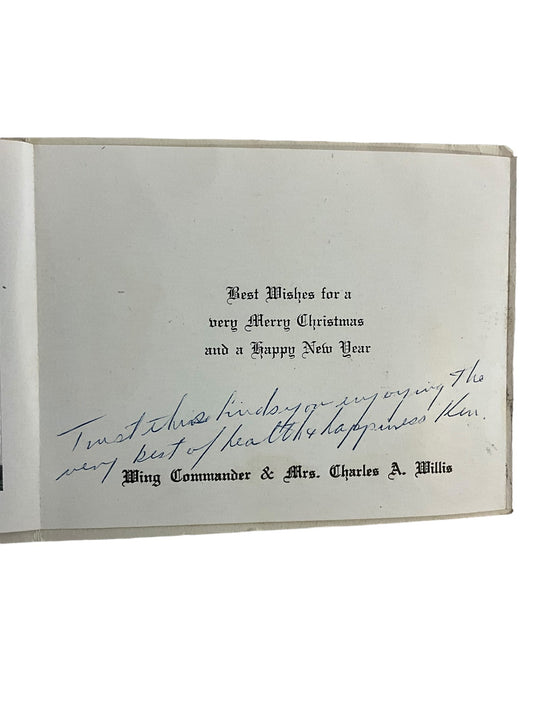 Best Wishes for a
very Merry Christmas
and a Happy New Year
Trust this finds you enjoying the
very best of health & happiness Ken.
Wing Commander & Mrs. Charles A. Willis